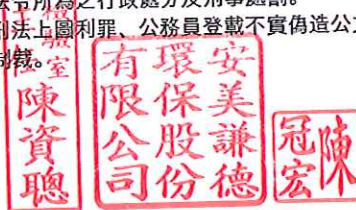 法令所為之行政處分及刑事處罰。
刑法上圖利罪、公務員登載不實偽造公
制裁。
驗室
陳資聰
安美謙德
環保股份
有限公司
陳
冠宏